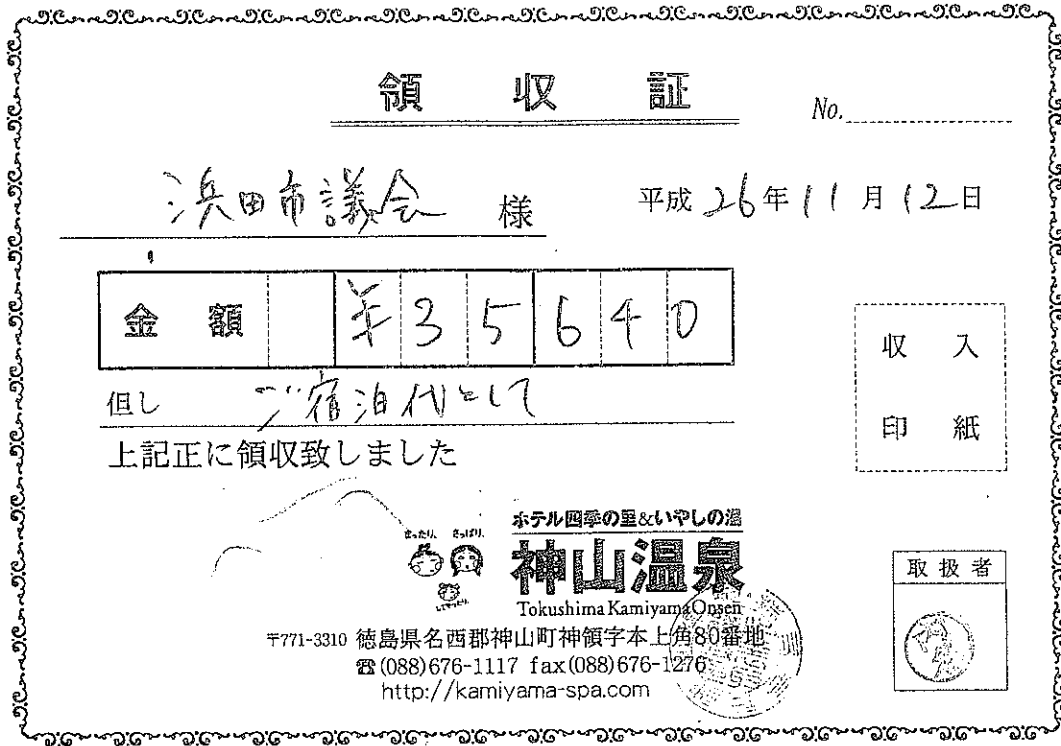 領収証
No.
浜田市議会 様
平成 26年 11月 12日
金額 ¥35640
但し ご宿泊代として
上記正に領収致しました
収入
印紙
ホテル四季の里&いやしの湯
まったり、 さっぱり、
してやったり。
神山温泉
Tokushima Kamiyama Onsen
〒771-3310 徳島県名西郡神山町神領字本上角80番地
☎(088)676-1117 fax(088)676-1276
http://kamiyama-spa.com
取扱者